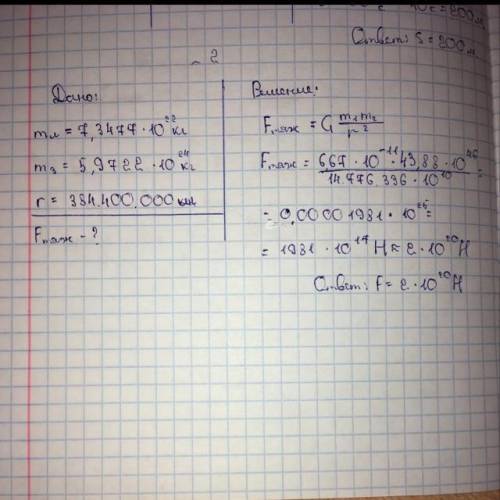 Ответ: S = 200 м.
2
Дано:
mл = 7,3477 · 10²² кг
mз = 5,9722 · 10²⁴ кг
r = 384.400.000 км
Fтяж - ?
Решение:
Fтяж = G m₁m₂ / r²
Fтяж = 667 · 10⁻¹¹ · 43,88 · 10⁴⁶ / 14.776.336 · 10¹⁰ =
= 0,00001981 · 10²⁵ =
= 1981 · 10¹⁷ Н ≈ 2 · 10²⁰ Н
Ответ: F = 2 · 10²⁰ Н